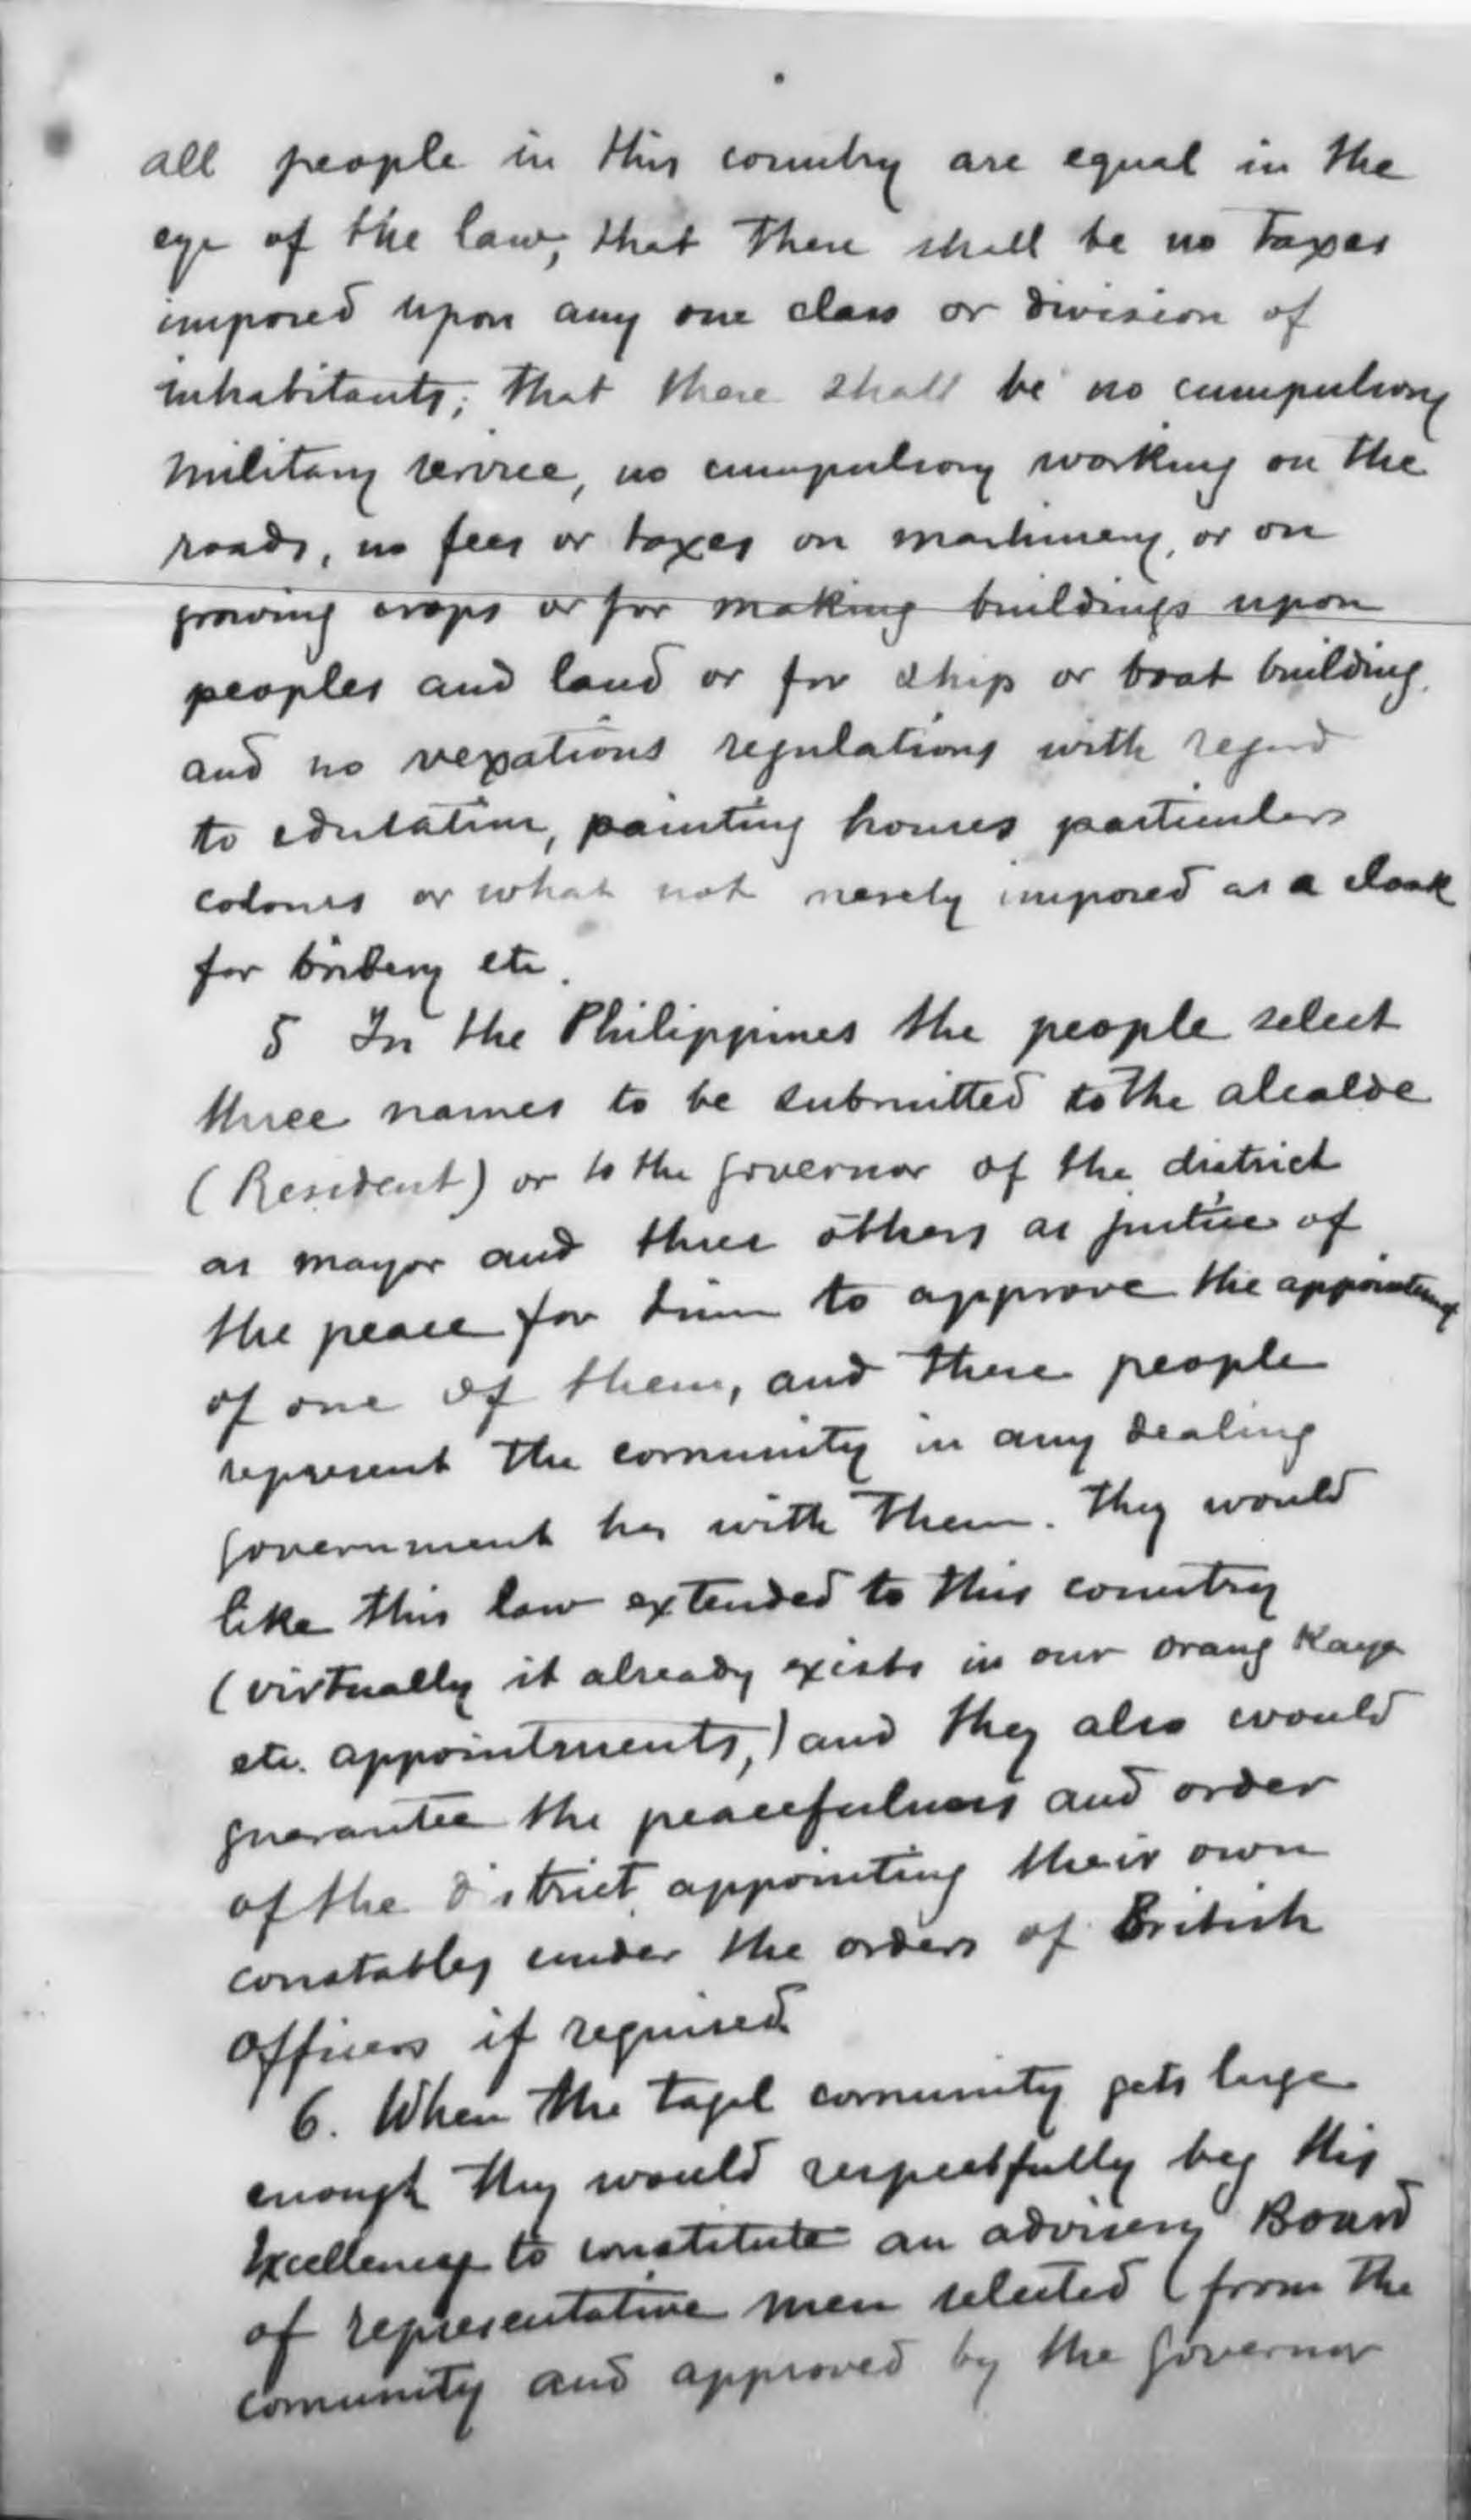 all people in this country are equal in the
eye of the law, that there shall be no taxes
imposed upon any one class or division of
inhabitants; that there shall be no cumpulsory
military service, no cumpulsory working on the
roads, no fees or taxes on machinery, or on
growing crops or for making buildings upon
peoples and land or for ship or boat building,
and no vexations regulations with regard
to edutation, painting houses particulars
colours or what not merely imposed as a cloak
for bribery etc.
5 In the Philippines the people select
three names to be submitted to the alcalde
(Resident) or to the governor of the district
as mayor and three others as justice of
the peace for him to approve the appointing
of one of them, and these people
represent the comunity in any dealing
government has with them. They would
like this law extended to this country
(virtually it already exists in our orang Kaya
etc. appointments,) and they also would
guarantee the peacefulness and order
of the district appointing their own
constables under the orders of British
officers if required.
6. When the tagal comunity gets large
enough they would respectfully beg His
Excellency to constitute an advisery Board
of representative men selected (from the
comunity and approved by the governor